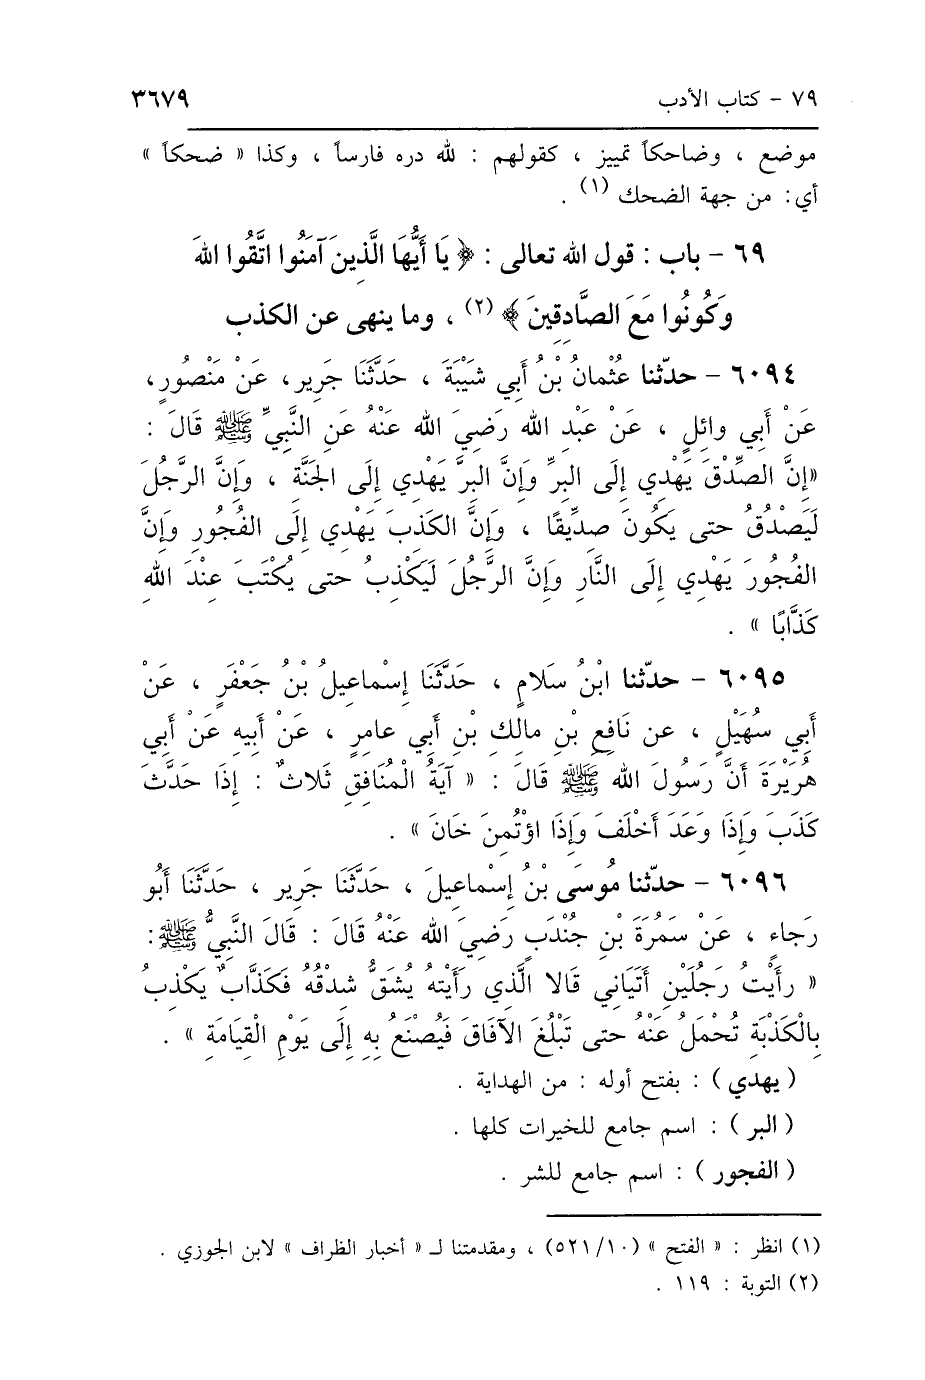 ٧٩ - كتاب الأدب ٣٦٧٩
موضع ، وضاحكاً تمييز ، كقولهم : لله دره فارساً ، وكذا « ضحكاً »
أي: من جهة الضحك (١) .
٦٩ - باب : قول الله تعالى : ﴿ يَا أَيُّهَا الَّذِينَ آمَنُوا اتَّقُوا اللهَ
وَكُونُوا مَعَ الصَّادِقِينَ ﴾ (٢) ، وما ينهى عن الكذب
٦٠٩٤ - حدّثنا عُثْمانُ بْنُ أَبي شَيْبَةَ ، حَدَّثَنَا جَرِير، عَنْ مَنْصُورٍ،
عَنْ أَبِي وائِلٍ ، عَنْ عَبْدِ الله رَضِيَ الله عَنْهُ عَنِ النَّبِيِّ ﷺ قَالَ :
«إِنَّ الصِّدْقَ يَهْدِي إِلَى البِرِّ وَإِنَّ البِرَّ يَهْدِي إِلَى الجَنَّةِ ، وَإِنَّ الرَّجُلَ
لَيَصْدُقُ حتى يَكُونَ صدِّيقًا ، وَإِنَّ الكَذبَ يَهْدِي إِلَى الفُجُورِ وَإِنَّ
الفُجُورَ يَهْدِي إِلَى النَّارِ وَإِنَّ الرَّجُلَ لَيَكْذِبُ حتى يُكْتَبَ عِنْدَ اللهِ
كَذَّابًا » .
٦٠٩٥ - حدّثنا ابْنُ سَلَامٍ ، حَدَّثَنَا إِسْماعِيلُ بْنُ جَعْفَرٍ ، عَنْ
أَبِي سُهَيْلٍ ، عن نَافِعِ بْنِ مالِكِ بْنِ أَبي عامِرٍ ، عَنْ أَبيهِ عَنْ أَبي
هُرَيْرَةَ أَنَّ رَسُولَ الله ﷺ قَالَ : « آيَةُ الْمُنَافِقِ ثَلاثٌ : إِذَا حَدَّثَ
كَذَبَ وَإِذَا وَعَدَ أَخْلَفَ وَإِذَا اؤْتُمِنَ خَانَ » .
٦٠٩٦ - حدّثنا مُوسَى بْنُ إِسْماعِيلَ ، حَدَّثَنَا جَرِير ، حَدَّثَنَا أَبُو
رَجَاءٍ ، عَنْ سَمُرَةَ بْنِ جُنْدَبٍ رَضِيَ الله عَنْهُ قَالَ : قَالَ النَّبِيُّ ﷺ:
« رأَيْتُ رَجُلَيْنِ أَتَيَانِي قَالا الَّذي رَأَيْتهُ يُشَقُّ شدْقُهُ فَكَذَّابٌ يَكْذِبُ
بِالْكَذْبَةِ تُحْمَلُ عَنْهُ حتى تَبْلُغَ الآفَاقَ فَيُصْنَعُ بِهِ إِلَى يَوْمِ الْقِيَامَةِ » .
( يهدي ) : بفتح أوله : من الهداية .
( البر ) : اسم جامع للخيرات كلها .
( الفجور ) : اسم جامع للشر .
(١) انظر : « الفتح » (٥٢١/١٠) ، ومقدمتنا لـ « أخبار الظراف » لابن الجوزي .
(٢) التوبة : ١١٩ .